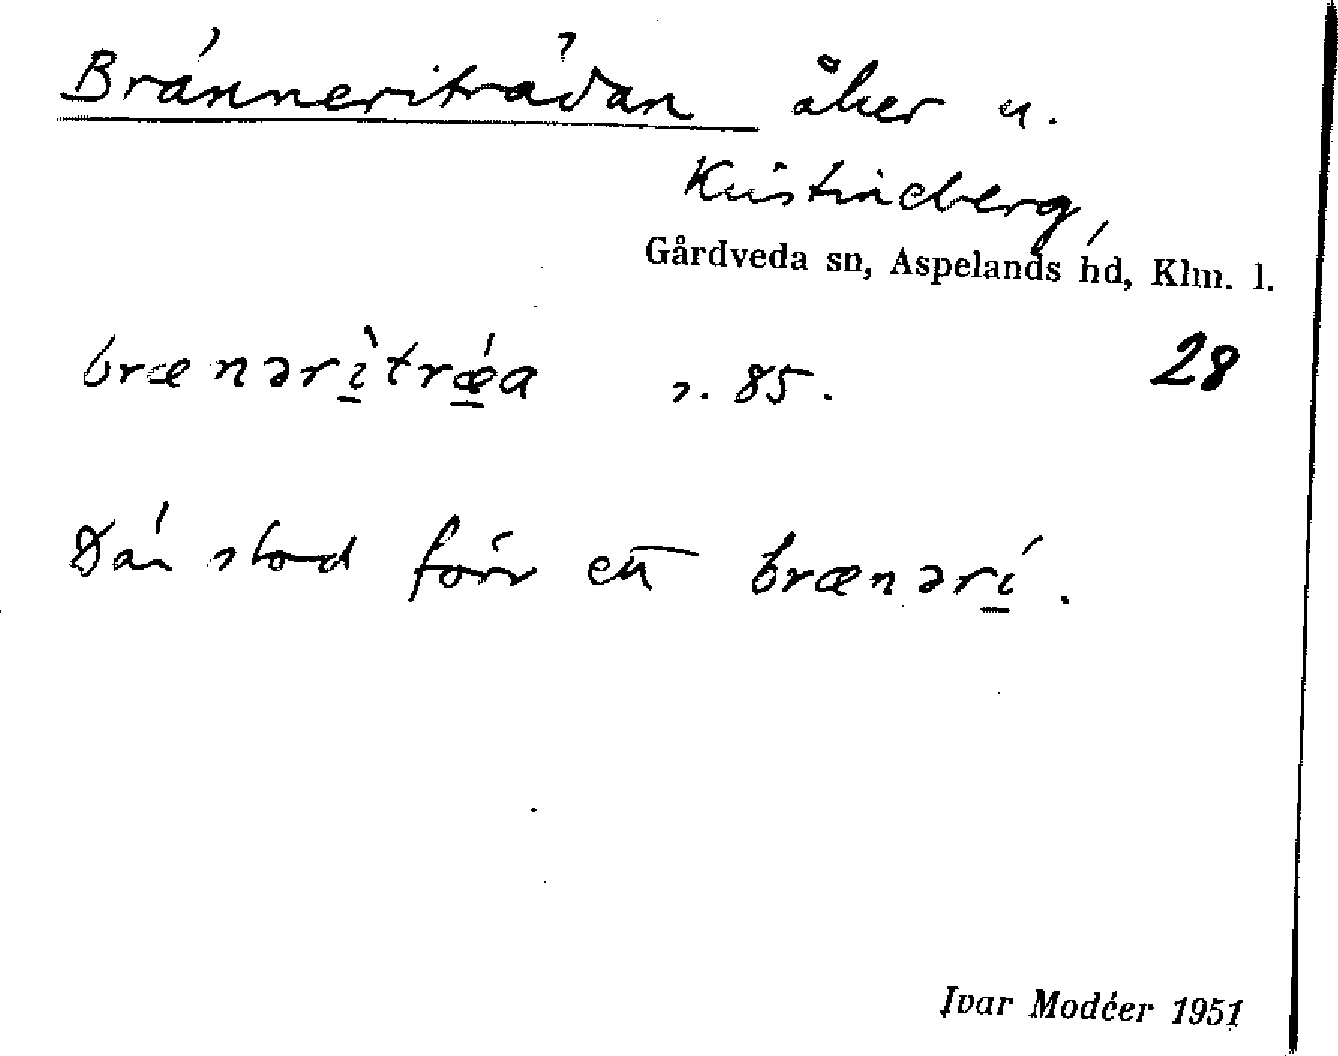 Bränneriträdan åker u.
Kristineberg,
Gårdveda sn, Aspelands hd, Klm. l.
brænərì̱trǽ̱a s. 85. 28
Där stod förr ett brænərí̱.
Ivar Modéer 1951